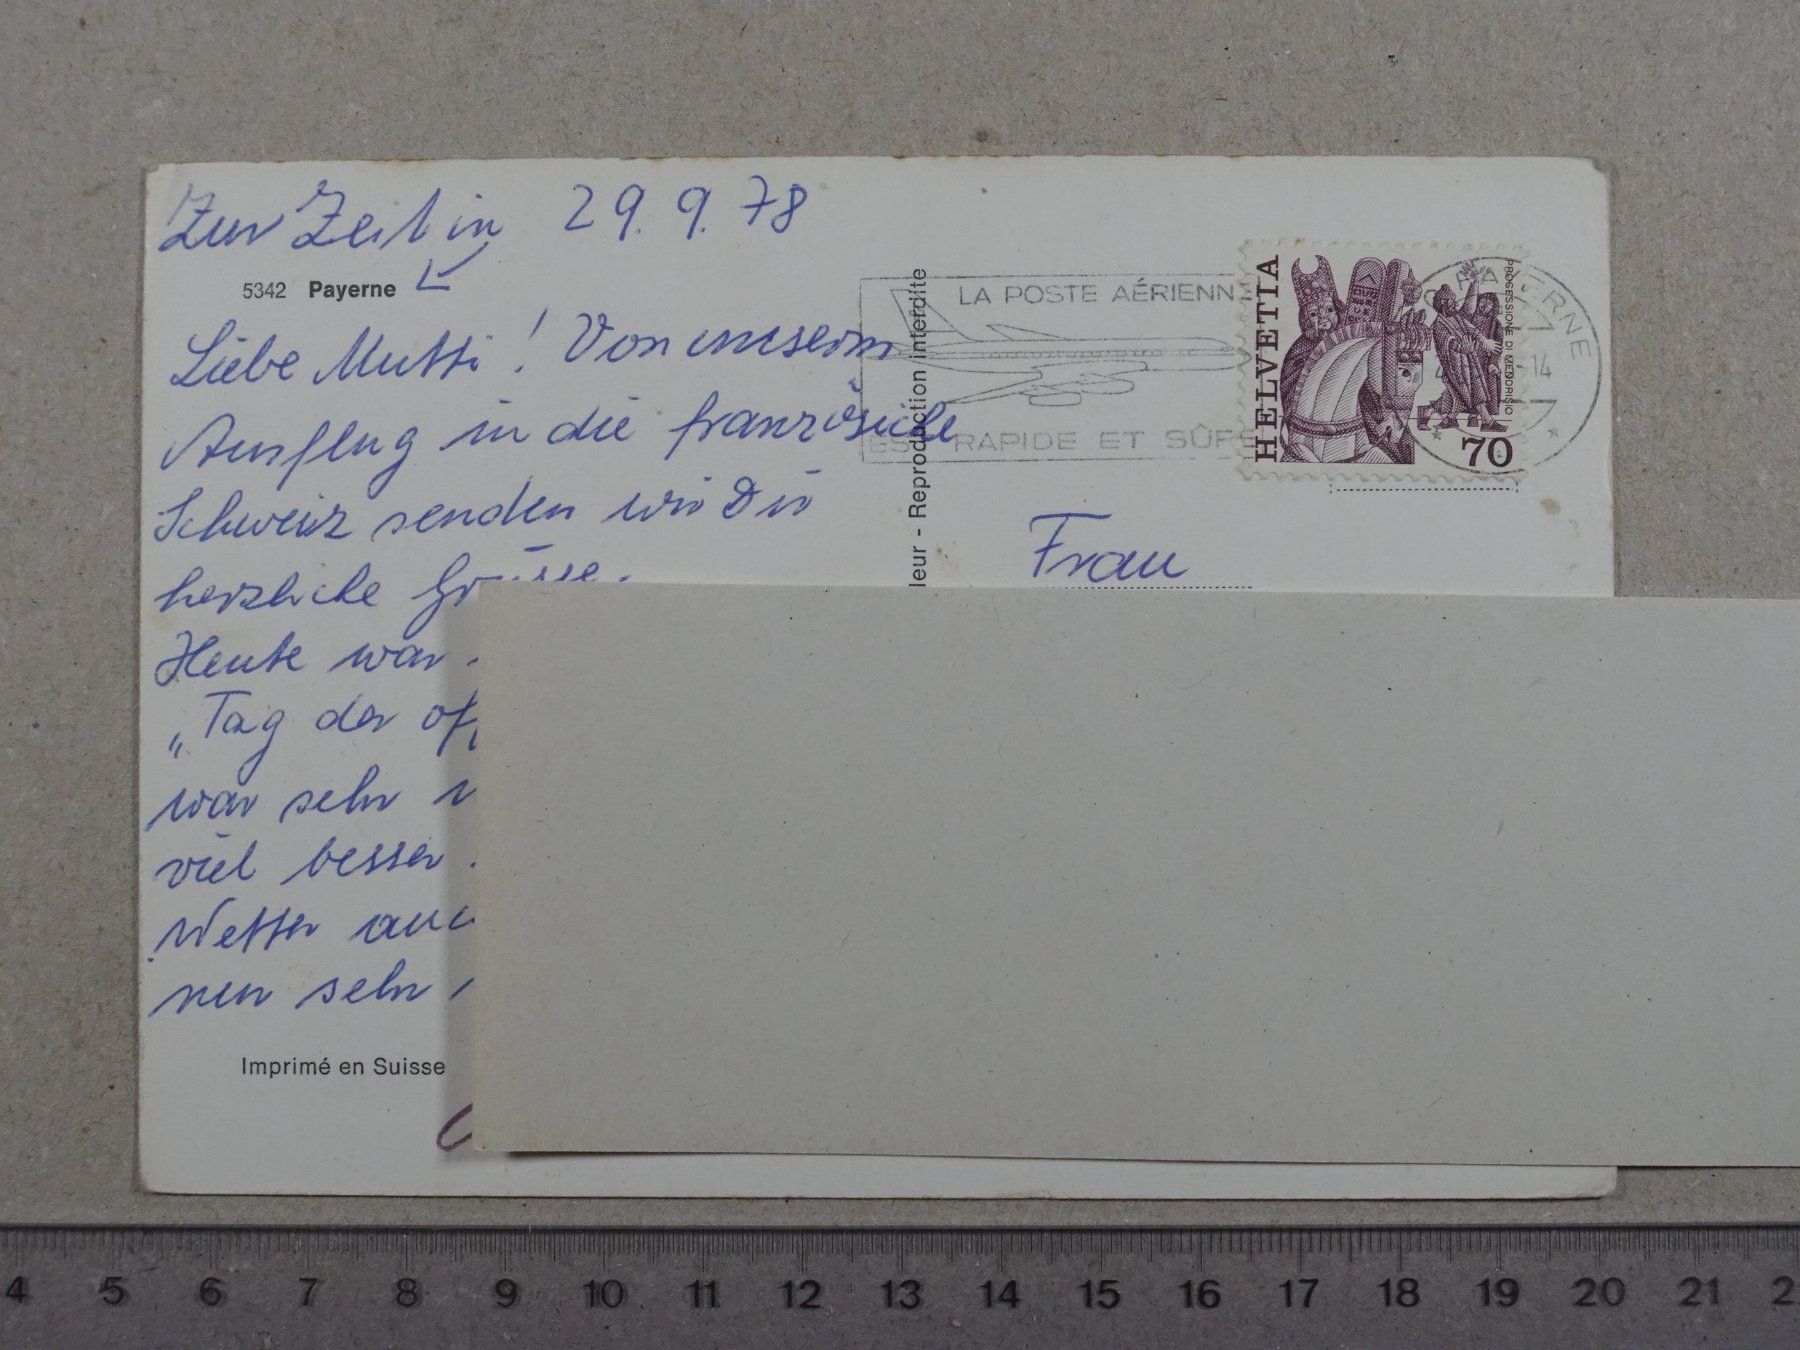 Zur Zeit in 29. 9. 78
5342 Payerne
Liebe Mutti! Von unserm
Ausflug in die französiche
Schweiz senden wir Dir
herzliche Grüsse.
Heute war
„Tag der
war sehr
viel besser.
Wetter
nen sehr
Imprimé en Suisse
leur - Reproduction interdite
LA POSTE AÉRIENN
EST RAPIDE ET SÛRE
HELVETIA
PROCESSIONE DI MENDRISIO
70
PAYERNE
-14
Frau
4 5 6 7 8 9 10 11 12 13 14 15 16 17 18 19 20 21